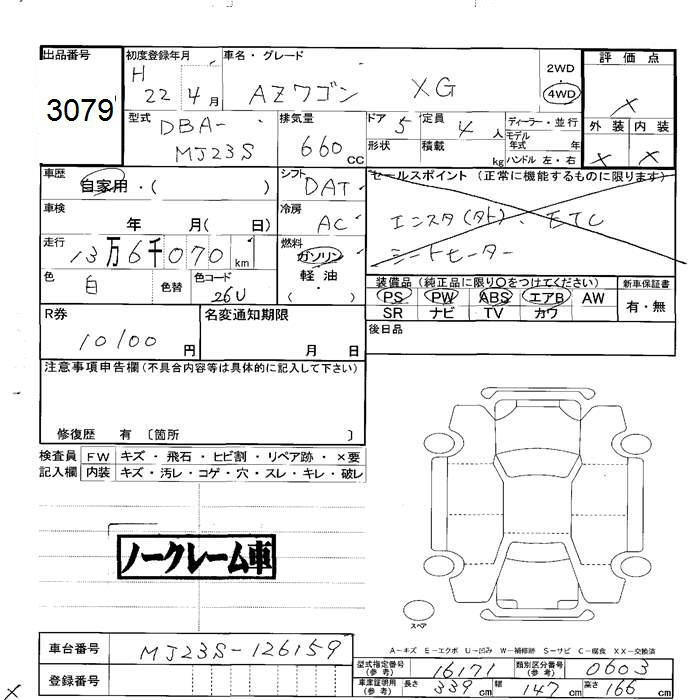 出品番号
3079
初度登録年月
H 22年 4月
車名・グレード
AZワゴン XG
2WD
4WD
評価点
×
外装 内装
× ×
型式
DBA-
MJ23S
排気量
660 CC
ドア 5
形状
定員 4 人
積載 kg
ディーラー・並行
モデル年式 年
ハンドル 左・右
車歴
自家用・( )
シフト
DAT
セールスポイント (正常に機能するものに限ります)
エンスタ(タト)、ETC
シートヒーター
車検
年 月( 日)
冷房
AC
走行
13万6千070 km
燃料
ガソリン
軽油
( )
色
白
色替
色コード
26U
装備品 (純正品に限り〇をつけてください)
PS PW ABS エアB AW
SR ナビ TV カワ
新車保証書
有・無
後日品
R券
10100 円
名変通知期限
月 日
注意事項申告欄(不具合内容等は具体的に記入して下さい)
修復歴 有 〔箇所 〕
検査員
記入欄
FW キズ・飛石・ヒビ割・リペア跡・×要
内装 キズ・汚レ・コゲ・穴・スレ・キレ・破レ
ノークレーム車
スペア
A−キズ E−エクボ U−凹み W−補修跡 S−サビ C−腐食 XX−交換済
車台番号
MJ23S-126159
登録番号
型式指定番号
(参考)
16171
類別区分番号
(参考)
0603
車庫証明用
(参考)
長さ 339 cm 幅 147 cm 高さ 166 cm
×